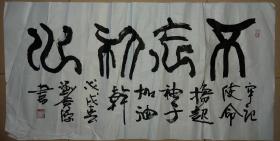 不忘初心
牢记
使命
撸起
袖子
加油
幹
戊戌
書